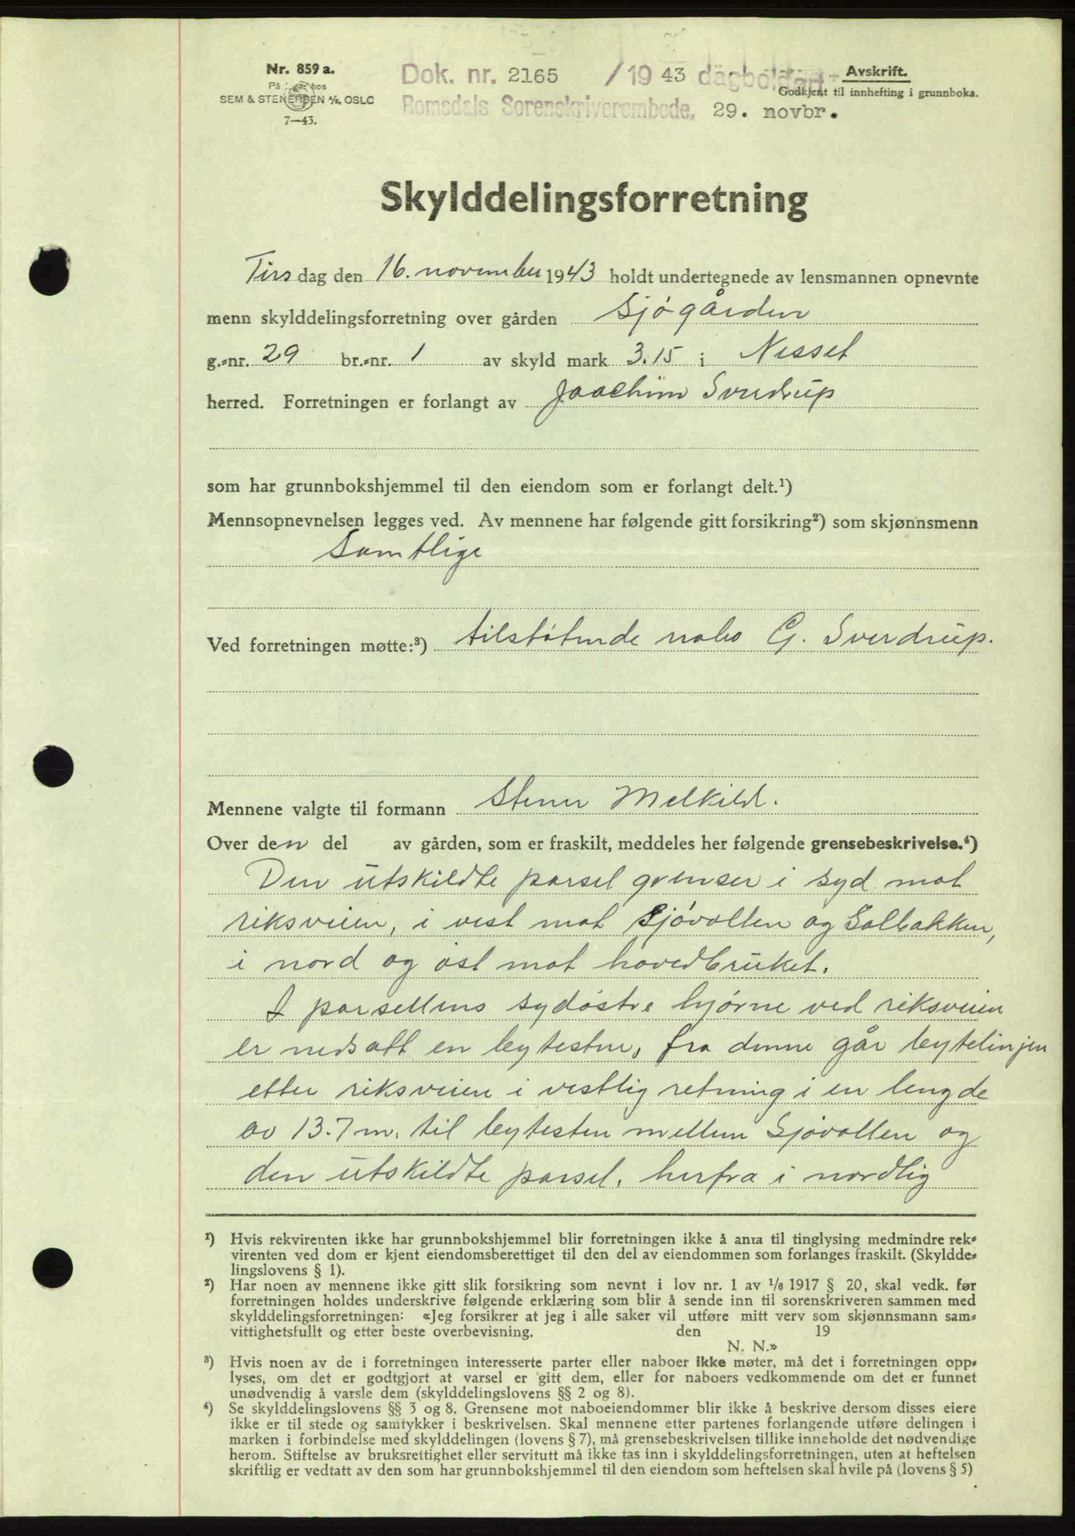 Nr. 859 a.
På lager hos
SEM & STENERSEN A/S, OSLO
7—43.
Dok. nr. 2165 /19 43 dagbokført
Romsdals Sorenskriverembede, 29. novbr.
Avskrift.
Godkjent til innhefting i grunnboka.
Skylddelingsforretning
Tirsdag den 16. november 1943 holdt undertegnede av lensmannen opnevnte
menn skylddelingsforretning over gården Sjøgården
g.-nr. 29 br.-nr. 1 av skyld mark 3.15 i Nesset
herred. Forretningen er forlangt av Joachim Sverdrup
som har grunnbokshjemmel til den eiendom som er forlangt delt.¹)
Mennsopnevnelsen legges ved. Av mennene har følgende gitt forsikring²) som skjønnsmenn
Samtlige
Ved forretningen møtte:³) tilstøtende nabo G. Sverdrup.
Mennene valgte til formann Stener Melkild.
Over den del av gården, som er fraskilt, meddeles her følgende grensebeskrivelse.⁴)
Den utskildte parsel grenser i syd mot
riksveien, i vest mot Sjøvollen og Solbakken,
i nord og øst mot hovedbruket.
I parsellens sydøstre hjørne ved riksveien
er nedsatt en bytesten, fra denne går bytelinjen
etter riksveien i vestlig retning i en lengde
av 13.7 m. til bytesten mellem Sjøvollen og
den utskildte parsel, herfra i nordlig
¹) Hvis rekvirenten ikke har grunnbokshjemmel blir forretningen ikke å anta til tinglysing medmindre rek-
virenten ved dom er kjent eiendomsberettiget til den del av eiendommen som forlanges fraskilt. (Skyldde-
lingslovens § 1).
²) Har noen av mennene ikke gitt slik forsikring som nevnt i lov nr. 1 av 1/6 1917 § 20, skal vedk. før
forretningen holdes underskrive følgende erklæring som blir å sende inn til sorenskriveren sammen med
skylddelingsforretningen: «Jeg forsikrer at jeg i alle saker vil utføre mitt verv som skjønnsmann sam-
vittighetsfullt og etter beste overbevisning. den 19
N. N.»
³) Hvis noen av de i forretningen interesserte parter eller naboer ikke møter, må det i forretningen opp-
lyses, om det er godtgjort at varsel er gitt dem, eller for naboers vedkommende om det er funnet
unødvendig å varsle dem (skylddelingslovens §§ 2 og 8).
⁴) Se skylddelingslovens §§ 3 og 8. Grensene mot naboeiendommer blir ikke å beskrive dersom disses eiere
ikke er til stede og samtykker i beskrivelsen. Skal mennene etter partenes forlangende utføre delingen i
marken i forbindelse med skylddelingen (lovens § 7), må grensebeskrivelsen tillike inneholde det nødvendige
herom. Stiftelse av bruksrettighet eller servitutt må ikke tas inn i skylddelingsforretningen, uten at heftelsen
skriftlig er vedtatt av den som har grunnbokshjemmel til den eiendom som heftelsen skal hvile på (lovens § 5)